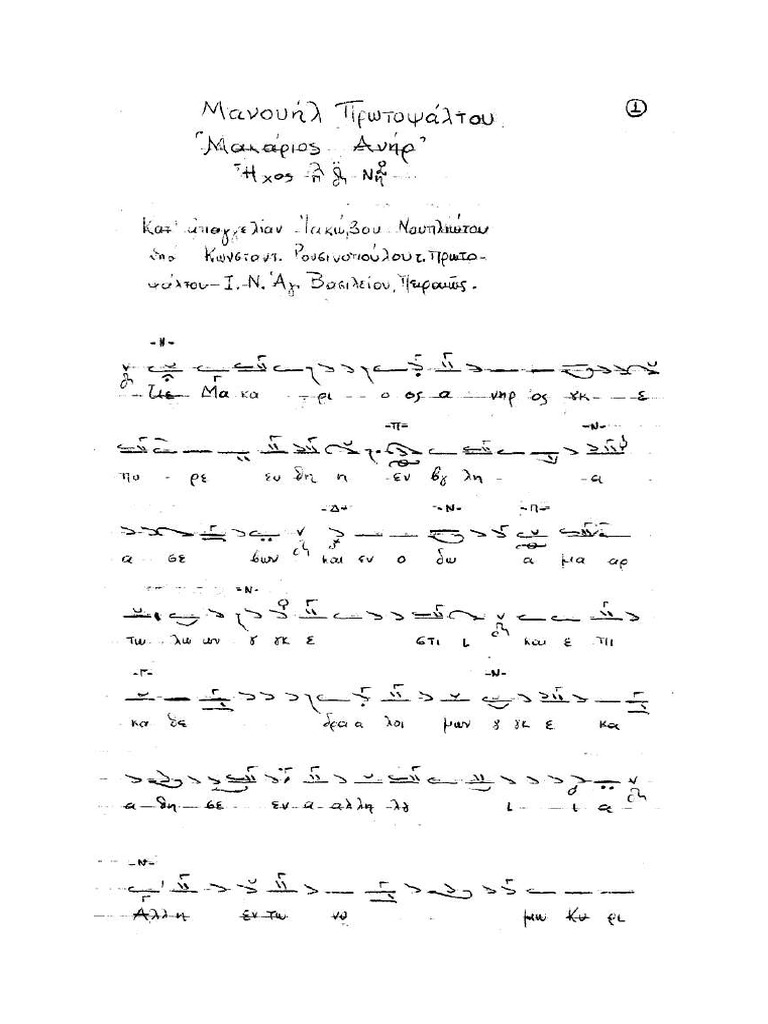 Μανουήλ Πρωτοψάλτου
①
"Μακάριος Ανήρ"
Ήχος Νη
Κατ' απαγγελίαν Ιακώβου Ναυπλιώτου
υπό Κωνσταντ. Ρουσινοπούλου τ. Πρωτο-
ψάλτου Ι. Ν. Άγ. Βασιλείου, Πειραιώς.
-Ν-
Μα κα ρι ο ος α νηρ ος γκ ε
-Π- -Ν-
πο ρε ευ θη η εν βȣ λη α
-Δ- -Ν- -Π-
α σε βων και εν ο δω α μα αρ
-Ν-
τω λω ων ȣ γκ ε στι ι και ε πι
-Γ- -Ν-
κα θε δρα α λοι μων ȣ γκ ε κα
α θη σε εν α α αλλη λȣ ι ι α
-Ν-
Αλλη εν τω νο μω Κυ ρι